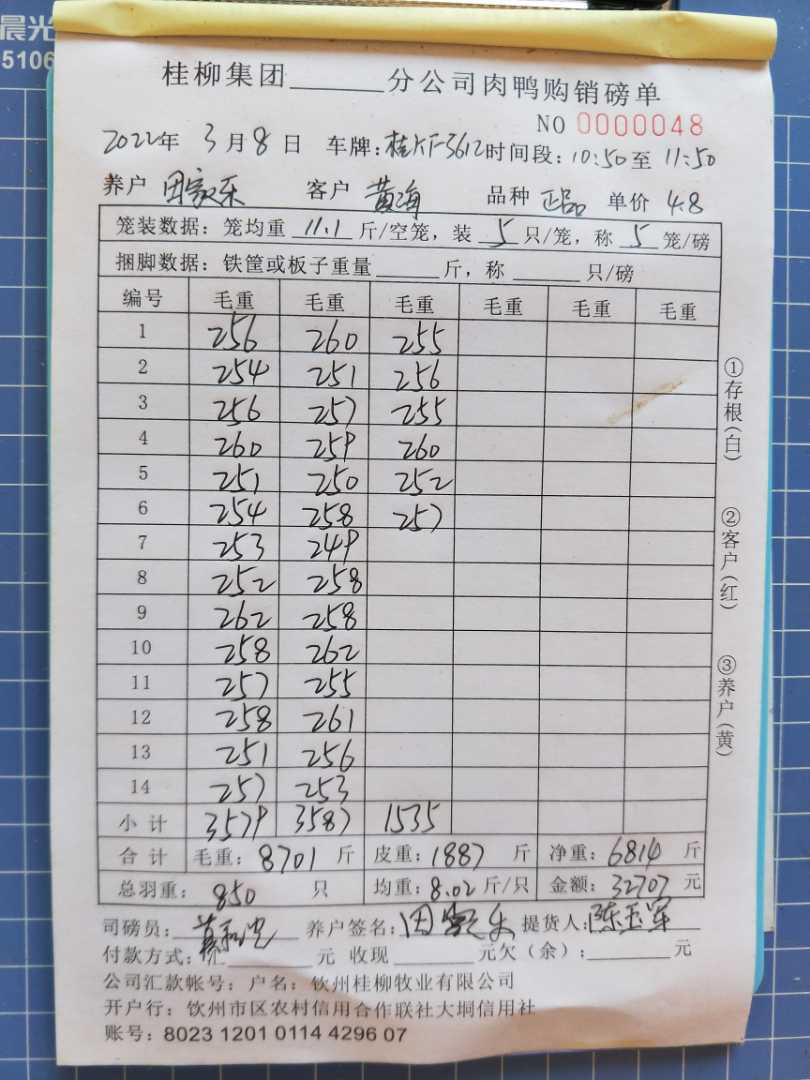 晨光
5106
桂柳集团______分公司肉鸭购销磅单
NO 0000048
2022年 3月8日 车牌:桂KF-3612 时间段:10:50至11:50
养户 田家乐 客户 黄海 品种 正品 单价 4.8
笼装数据:笼均重 11.1 斤/空笼,装 5 只/笼,称 5 笼/磅
捆脚数据:铁筐或板子重量______斤,称______只/磅
编号 毛重 毛重 毛重 毛重 毛重 毛重
1 256 260 255
2 254 251 256
3 256 257 255
4 260 259 260
5 251 250 252
6 254 258 257
7 253 249
8 252 258
9 262 258
10 258 262
11 257 255
12 258 261
13 251 256
14 257 253
小计 3579 3587 1535
合计 毛重:8701斤 皮重:1887斤 净重:6814斤
总羽重:850只 均重:8.02斤/只 金额:32707元
司磅员: 养户签名:田家乐 提货人:陈玉军
付款方式:汇______元 收现______元欠(余):______元
公司汇款帐号:户名:钦州桂柳牧业有限公司
开户行:钦州市区农村信用合作联社大垌信用社
账号:8023 1201 0114 4296 07
①存根(白)
②客户(红)
③养户(黄)